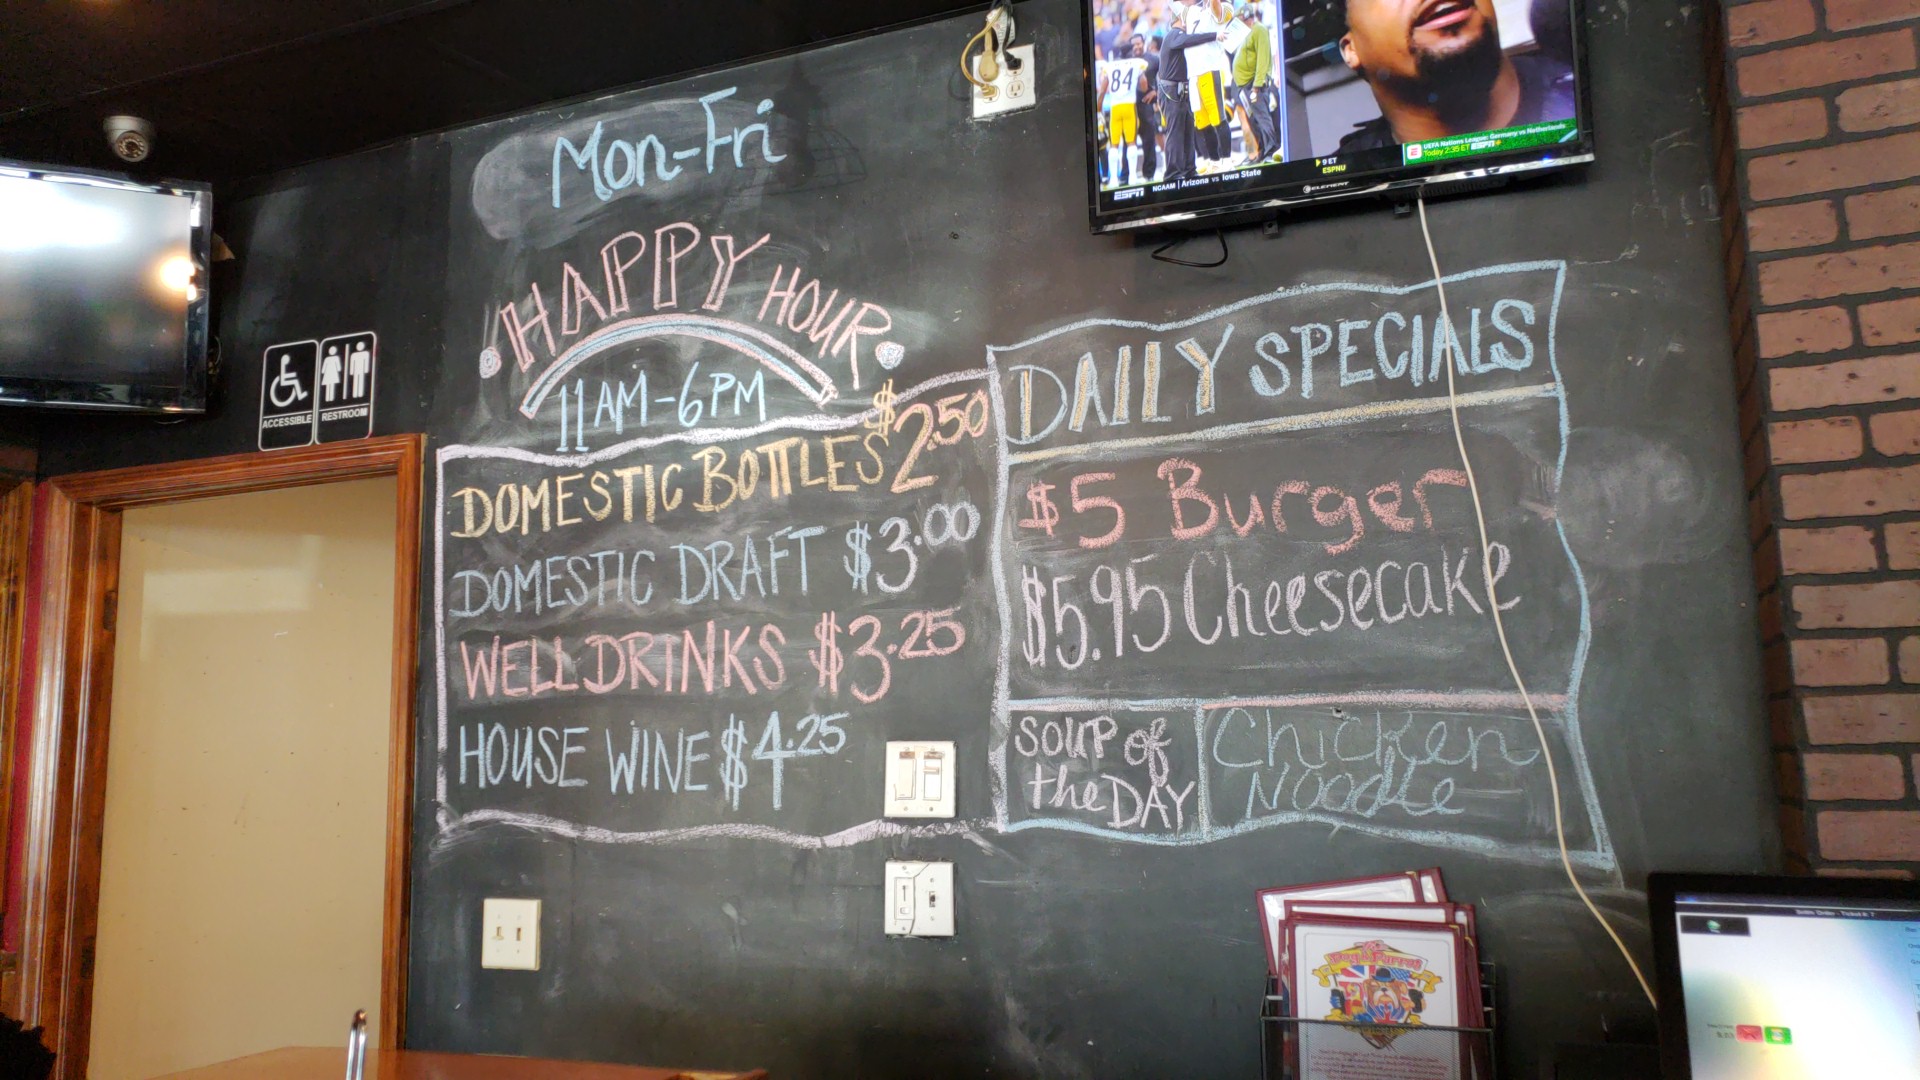 Mon-Fri
HAPPY HOUR
11AM-6PM
DOMESTIC BOTTLES $2.50
DOMESTIC DRAFT $3.00
WELL DRINKS $3.25
HOUSE WINE $4.25
DAILY SPECIALS
$5 Burger
$5.95 Cheesecake
SOUP of
the DAY
Chicken
Noodle
ACCESSIBLE
RESTROOM
84
7
ESPN
NCAAM | Arizona vs Iowa State
9 ET
ESPNU
UEFA Nations League: Germany vs Netherlands
Today 2:35 ET ESPN+
ELEMENT
Dog & Parrot